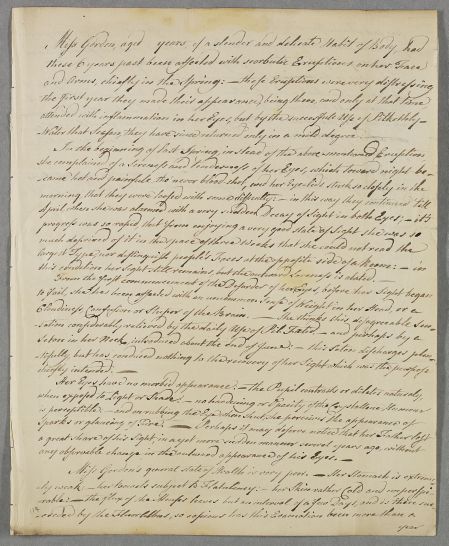 Miss Gordon, aged     years, of a slender and delicate Habit of Body, had
these 6 years past been affected with scorbutic Eruptions on her Face
and Arms, chiefly in the Spring: – these Eruptions were very distressing
the first year they made their appearance, being then, and only at that time
attended with inflammation in her Eyes, but by the successful Use of Pitkethly-
Water that Season, they have since returned only in a mild degree.
In the beginning of last Spring, in stead of the above mentioned Eruptions
she complained of a Soreness and Tenderness of her Eyes, which toward night be-
came hot and painful, tho never blood shot, and her Eye-lids stuck so closely in the
morning that they were opened with some difficulty: – in this way they continued till
April when she was alarmed with a very sudden Decay of Sight in both Eyes; – it's
progress was so rapid that from enjoying a very good state of Sight she was so
much deprived of it in the space of three Weeks that she could not read the
largest Type, nor distinguish people's Faces at the opposite side of a Room: – in
this condition her Sight still remains, but the outward Soreness is abated.
From the first commencement of the Disorder of her Eyes, before her Sight began
to fail, she has been affected with an uncommon Sense of Weight in her Head, or a
Cloudiness Confusion or Stupor of the Brain. – She thinks this disagreeable Sen-
sation considerably relieved by the daily Use of Pil. – and perhaps by a
Seton in her Neck, introduced about the end of June: – this Seton discharges plen-
tifully but has conduced nothing to the recovery of her Sight which was the purpose
chiefly intended. –
Her Eyes have no morbid appearance: – the Pupil contracts or dilates naturally,
when exposed to Light or Shade: – no hardening or Opacity of the Crystaline Humour
is perceptible – and on rubbing the Eyes when shut, she perceives the appearance of
Sparks or glancing of Fire. – Perhaps it may deserve notice that her Father lost
a great share of his Sight in a yet more sudden manner several years ago, without
any observable change in the outward appearance of his Eyes. –
Miss Gordon's general state of Health is very poor. – Her Stomach is extreme-
ly weak – her bowels subject to Flatulency: – her Skin rather Cold and imperspi-
rable: – the flux of the Menses leaves but an interval of a few Days, and is then suc-
ceeded by the Fluor Albus, so copious has this Evacuation been more than a
year